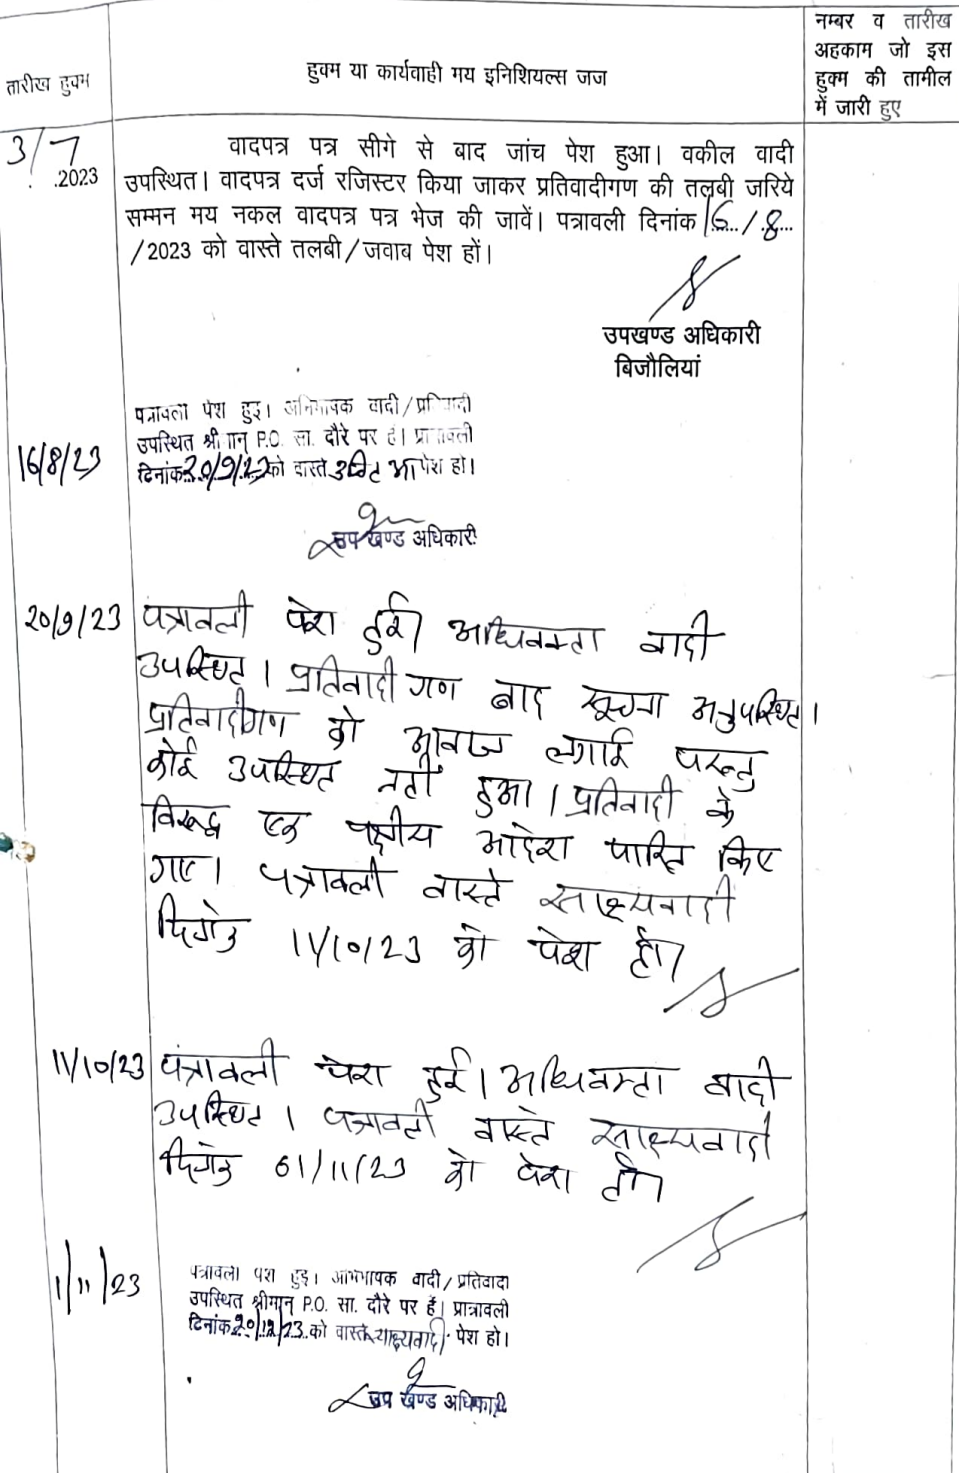 तारीख हुक्म
हुक्म या कार्यवाही मय इनिशियल्स जज
नम्बर व तारीख
अहकाम जो इस
हुक्म की तामील
में जारी हुए
3/7
.2023
वादपत्र पत्र सीगे से बाद जांच पेश हुआ। वकील वादी
उपस्थित। वादपत्र दर्ज रजिस्टर किया जाकर प्रतिवादीगण की तलबी जरिये
सम्मन मय नकल वादपत्र पत्र भेज की जावें। पत्रावली दिनांक 16../.8...
/2023 को वास्ते तलबी/जवाब पेश हों।
उपखण्ड अधिकारी
बिजौलियां
16/8/23
पत्रावली पेश हुई। अभिभाषक वादी/प्रतिवादी
उपस्थित श्रीमान् P.O. सा. दौरे पर है। प्रात्रावली
दिनांक 20/9/23 को वास्ते पेश हो।
उप खण्ड अधिकारी
20/9/23
पत्रावली पेश हुई। अधिवक्ता वादी
उपस्थित। प्रतिवादीगण बाद सूचना अनुपस्थित।
प्रतिवादीगण को आवाज लगाई परन्तु
कोई उपस्थित नहीं हुआ। प्रतिवादी के
विरूद्ध एक पक्षीय आदेश पारित किए
गए। पत्रावली वास्ते साक्ष्यवादी
दिनांक 11/10/23 को पेश हो।
11/10/23
पत्रावली पेश हुई। अधिवक्ता वादी
उपस्थित। पत्रावली वास्ते साक्ष्यवादी
दिनांक 01/11/23 को पेश हो।
1/11/23
पत्रावली पेश हुई। अभिभाषक वादी/प्रतिवादी
उपस्थित श्रीमान् P.O. सा. दौरे पर हैं। प्रात्रावली
दिनांक 20/12/23 को वास्ते साक्ष्यवादी पेश हो।
उप खण्ड अधिकारी